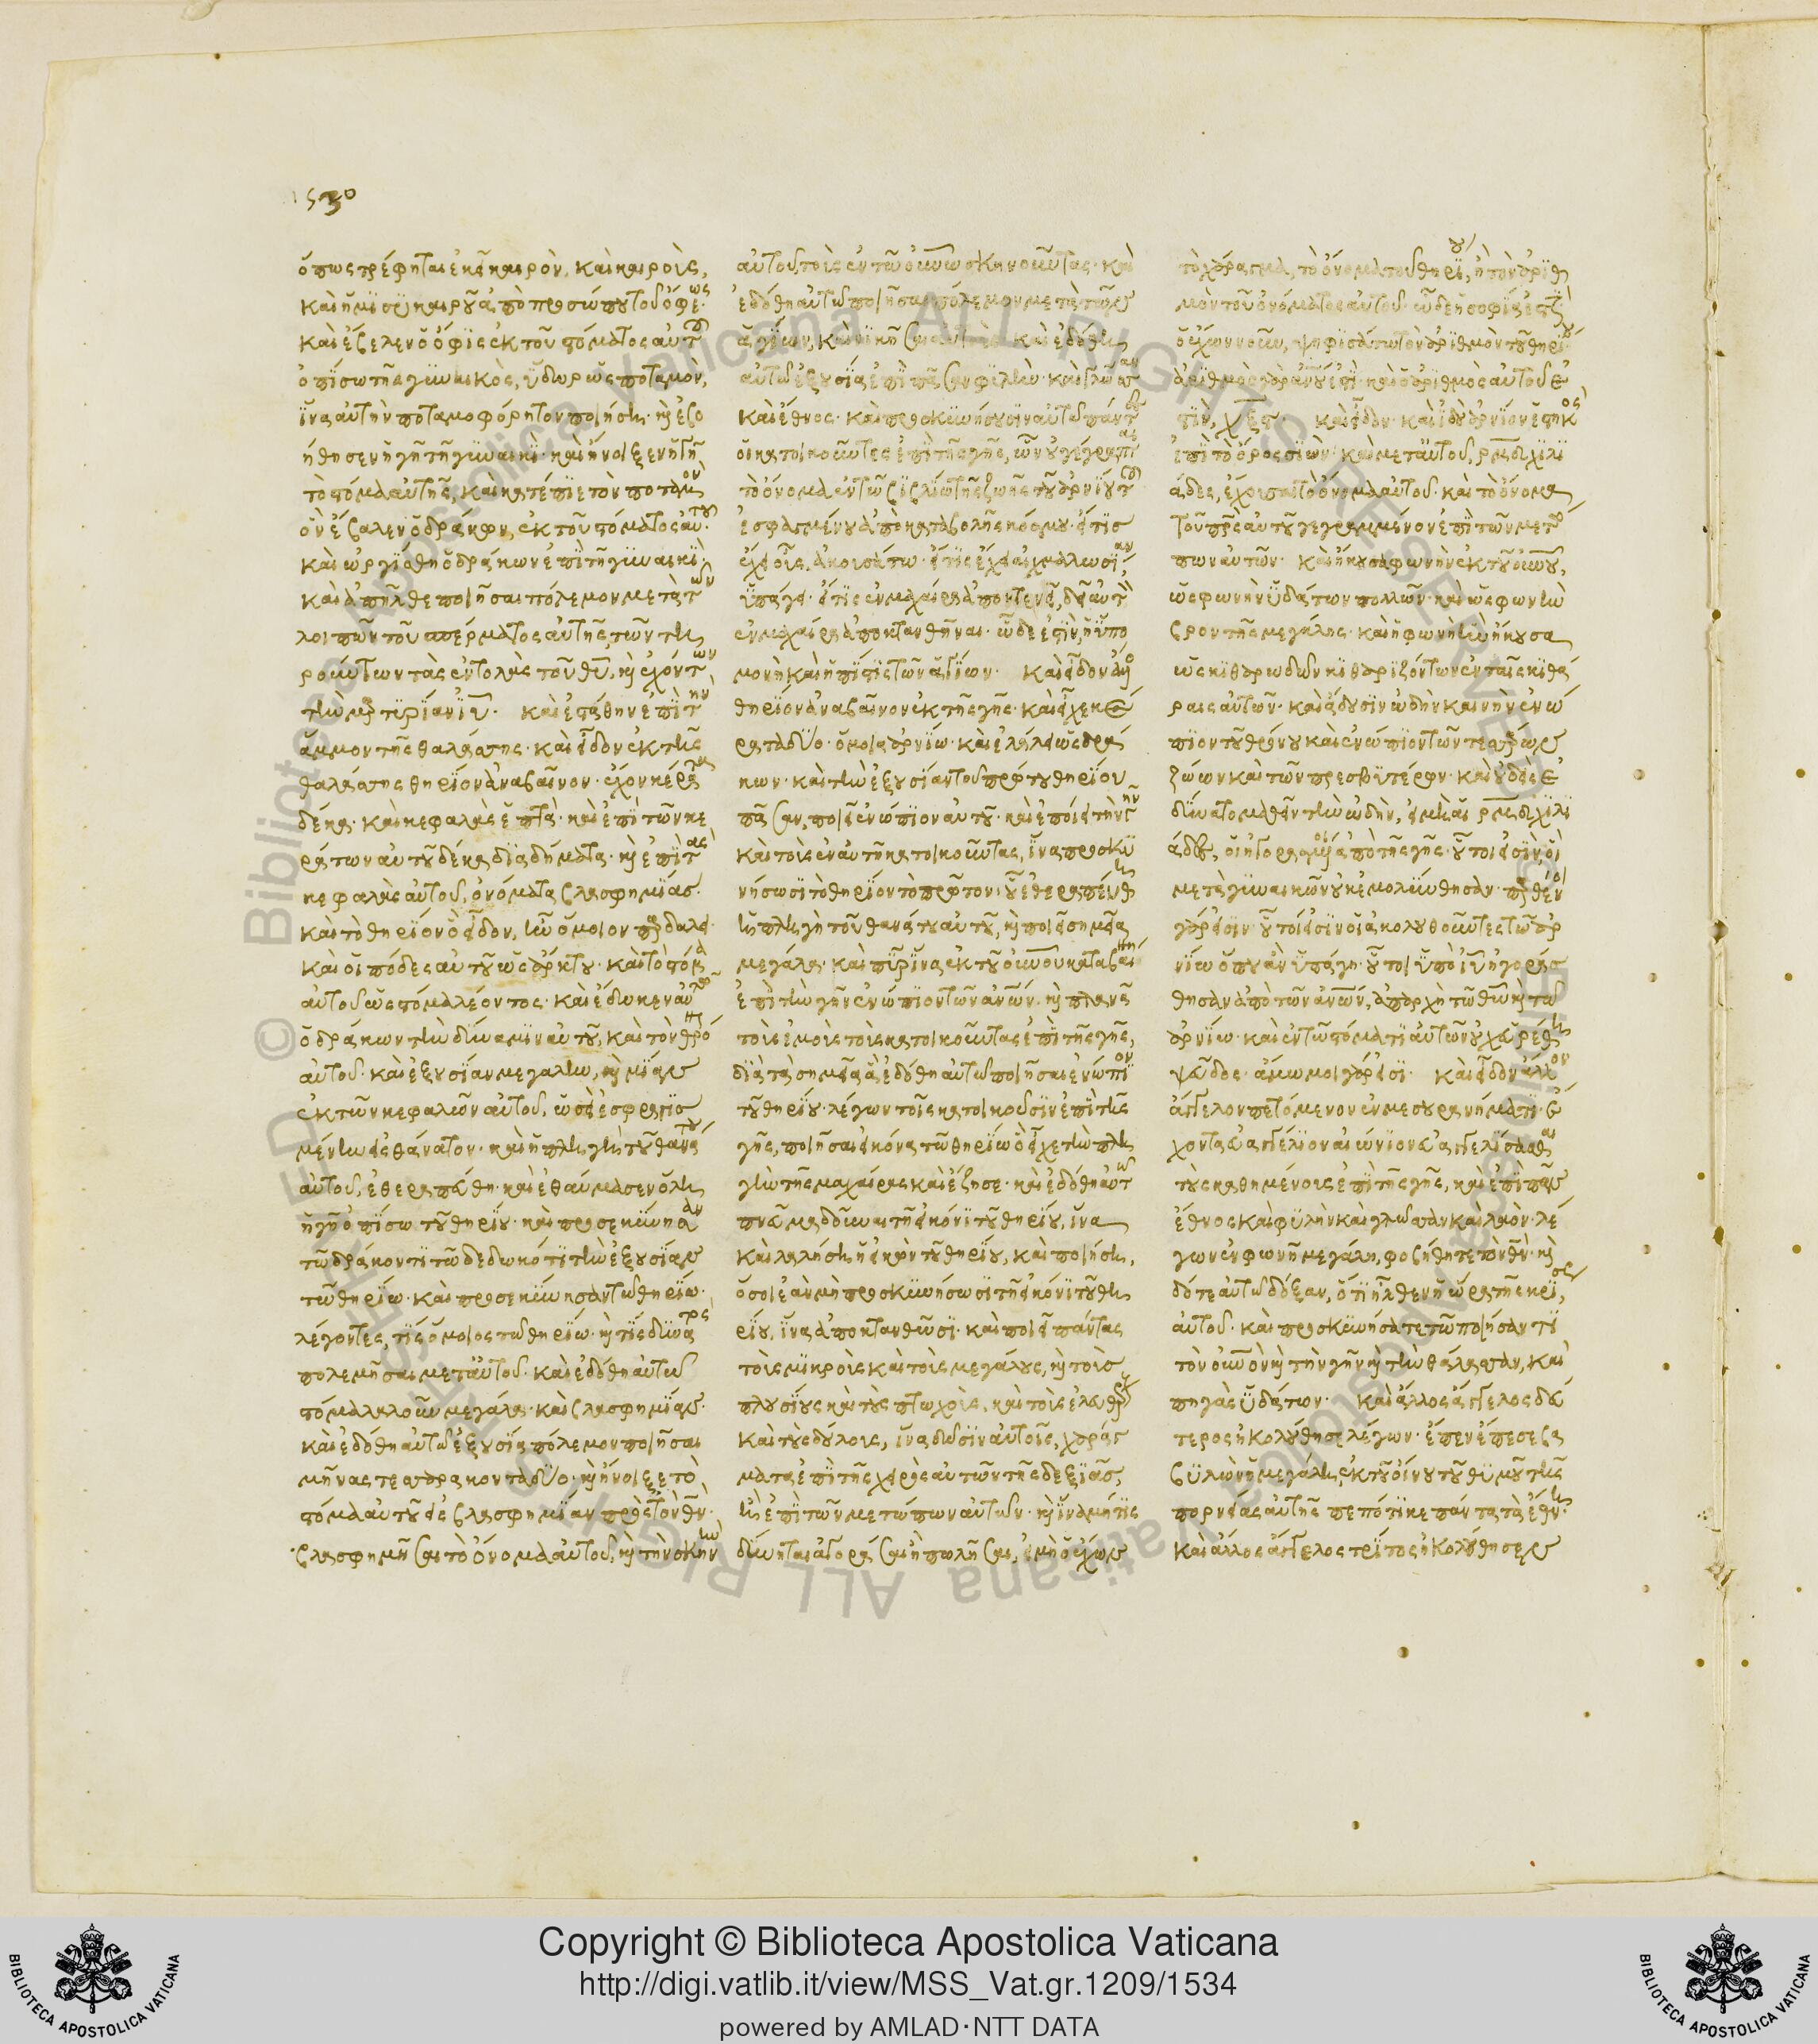 1530
ὅπως τρέφηται ἐκεῖ καιρὸν, καὶ καιροὺς,
καὶ ἥμισυ καιροῦ ἀπὸ προσώπου τοῦ ὄφεως.
καὶ ἔβαλεν ὁ ὄφις ἐκ τοῦ στόματος αὐτοῦ
ὀπίσω τῆς γυναικὸς, ὕδωρ ὡς ποταμὸν,
ἵνα αὐτὴν ποταμοφόρητον ποιήσῃ. καὶ ἐβο
ήθησεν ἡ γῆ τῇ γυναικί. καὶ ἤνοιξεν ἡ γῆ
τὸ στόμα αὐτῆς, καὶ κατέπιε τὸν ποταμὸν
ὃν ἔβαλεν ὁ δράκων ἐκ τοῦ στόματος αὐτοῦ.
καὶ ὠργίσθη ὁ δράκων ἐπὶ τῇ γυναικὶ.
καὶ ἀπῆλθε ποιῆσαι πόλεμον μετὰ τῶν
λοιπῶν τοῦ σπέρματος αὐτῆς, τῶν τη
ρούντων τὰς ἐντολὰς τοῦ θυ, καὶ ἐχόντων
τὴν μαρτυρίαν ιυ. καὶ ἐστάθην ἐπὶ τὴν
ἄμμον τῆς θαλάσσης. καὶ εἶδον ἐκ τῆς
θαλάσσης θηρίον ἀναβαῖνον. ἔχον κέρατα
δέκα. καὶ κεφαλὰς ἑπτά. καὶ ἐπὶ τῶν κε
ράτων αὐτοῦ δέκα διαδήματα. καὶ ἐπὶ τὰς
κεφαλὰς αὐτοῦ, ὀνόματα βλασφημίας.
καὶ τὸ θηρίον ὃ εἶδον, ἦν ὅμοιον παρδάλει.
καὶ οἱ πόδες αὐτοῦ ὡς ἄρκτου. καὶ τὸ στόμα
αὐτοῦ ὡς στόμα λέοντος. καὶ ἔδωκεν αὐτῷ
ὁ δράκων τὴν δύναμιν αὐτοῦ, καὶ τὸν θρόνον
αὐτοῦ. καὶ ἐξουσίαν μεγάλην, καὶ μίαν
ἐκ τῶν κεφαλῶν αὐτοῦ, ὡσεὶ ἐσφαγισ
μένην εἰς θάνατον. καὶ ἡ πληγὴ τοῦ θανάτου
αὐτοῦ, ἐθεραπεύθη. καὶ ἐθαύμασεν ὅλη
ἡ γῆ ὀπίσω τοῦ θηρίου. καὶ προσεκύνησαν
τῷ δράκοντι τῷ δεδωκότι τὴν ἐξουσίαν
τῷ θηρίῳ. καὶ προσεκύνησαν τῷ θηρίῳ.
λέγοντες, τίς ὅμοιος τῷ θηρίῳ. καὶ τίς δύνατος
πολεμῆσαι μετ' αὐτοῦ. καὶ ἐδόθη αὐτῷ
στόμα λαλοῦν μεγάλα. καὶ βλασφημίαν.
καὶ ἐδόθη αὐτῷ ἐξουσία πόλεμον ποιῆσαι
μῆνας τεσσαράκοντα δύο. καὶ ἤνοιξε τὸ
στόμα αὐτοῦ εἰς βλασφημίαν πρὸς τὸν θν.
βλασφημῆσαι τὸ ὄνομα αὐτοῦ, καὶ τὴν σκηνὴν
αὐτοῦ, τοὺς ἐν τῷ οὐνῷ σκηνοῦντας. καὶ
ἐδόθη αὐτῷ ποιῆσαι πόλεμον μετὰ τῶν
ἁγίων, καὶ νικῆσαι αὐτούς. καὶ ἐδόθη
αὐτῷ ἐξουσία ἐπὶ πᾶσαν φυλὴν. καὶ γλῶσσαν
καὶ ἔθνος. καὶ προσκυνήσουσιν αὐτῷ πάντες
οἱ κατοικοῦντες ἐπὶ τῆς γῆς, ὧν οὐ γέγραπται
τὸ ὄνομα ἐν τῷ βιβλίῳ τῆς ζωῆς τοῦ ἀρνίου τοῦ
ἐσφαγμένου ἀπὸ καταβολῆς κόσμου. εἴ τις
ἔχει οὖς, ἀκουσάτω. εἴ τις ἔχει αἰχμαλωσίαν,
ὑπάγει. εἴ τις ἐν μαχαίρᾳ ἀποκτενεῖ, δεῖ αὐτὸν
ἐν μαχαίρᾳ ἀποκτανθῆναι. ὧδε ἐστὶν, ἡ ὑπο
μονὴ καὶ ἡ πίστις τῶν ἁγίων. καὶ εἶδον ἄλλο
θηρίον ἀναβαῖνον ἐκ τῆς γῆς. καὶ εἶχε κέ
ρατα δύο. ὅμοια ἀρνίῳ. καὶ ἐλάλει ὡς δρά
κων. καὶ τὴν ἐξουσίαν τοῦ πρώτου θηρίου
πᾶσαν, ποιεῖ ἐνώπιον αὐτοῦ. καὶ ἐποίει τὴν γῆν
καὶ τοὺς ἐν αὐτῇ κατοικοῦντας, ἵνα προσκυ
νήσωσι τὸ θηρίον τὸ πρῶτον. οὗ ἐθεραπεύθη
ἡ πληγὴ τοῦ θανάτου αὐτοῦ, καὶ ποιεῖ σημεῖα
μεγάλα. καὶ πῦρ ἵνα ἐκ τοῦ οὐνοῦ καταβαίνῃ
ἐπὶ τὴν γῆν ἐνώπιον τῶν ανων. καὶ πλανᾷ
τοὺς ἐμοὺς τοὺς κατοικοῦντας ἐπὶ τῆς γῆς,
διὰ τὰ σημεῖα ἃ ἐδόθη αὐτῷ ποιῆσαι ἐνώπιον
τοῦ θηρίου. λέγων τοῖς κατοικοῦσιν ἐπὶ τῆς
γῆς, ποιῆσαι εἰκόνα τῷ θηρίῳ ὃ εἶχε τὴν πλη
γὴν τῆς μαχαίρας καὶ ἔζησε. καὶ ἐδόθη αὐτῷ
πνεῦμα δοῦναι τῇ εἰκόνι τοῦ θηρίου, ἵνα
καὶ λαλήσῃ ἡ εἰκὼν τοῦ θηρίου, καὶ ποιήσῃ,
ὅσοι ἐὰν μὴ προσκυνήσωσι τῇ εἰκόνι τοῦ θη
ρίου, ἵνα ἀποκτανθῶσι. καὶ ποιεῖ πάντας
τοὺς μικροὺς καὶ τοὺς μεγάλους, καὶ τοὺς
πλουσίους καὶ τοὺς πτωχοὺς, καὶ τοὺς ἐλευθέρους
καὶ τοὺς δούλους, ἵνα δῶσιν αὐτοῖς, χαράγ
ματα ἐπὶ τῆς χειρὸς αὐτῶν τῆς δεξιᾶς,
ἢ ἐπὶ τῶν μετώπων αὐτῶν. καὶ ἵνα μή τις
δύνηται ἀγοράσαι ἢ πωλῆσαι, εἰ μὴ ὁ ἔχων
τὸ χάραγμα, τὸ ὄνομα τοῦ θηρίου, ἢ τὸν ἀριθ
μὸν τοῦ ὀνόματος αὐτοῦ. ὧδε ἡ σοφία ἐστί.
ὁ ἔχων νοῦν, ψηφισάτω τὸν ἀριθμὸν τοῦ θηρίου
ἀριθμὸς γὰρ ανου ἐστὶ. καὶ ὁ ἀριθμὸς αὐτοῦ ἐ
στὶν, χξϛ. καὶ εἶδον. καὶ ἰδοὺ ἀρνίον ἑστηκὸς
ἐπὶ τὸ ὄρος σιών. καὶ μετ' αὐτοῦ, ρμδ χιλι
άδες, ἔχουσαι τὸ ὄνομα αὐτοῦ. καὶ τὸ ὄνομα
τοῦ πρς αὐτοῦ γεγραμμένον ἐπὶ τῶν μετώ
πων αὐτῶν. καὶ ἤκουσα φωνὴν ἐκ τοῦ οὐνοῦ,
ὡς φωνὴν ὑδάτων πολλῶν. καὶ ὡς φωνὴν
βροντῆς μεγάλης. καὶ ἡ φωνὴ ἣν ἤκουσα
ὡς κιθαρωδῶν κιθαριζόντων ἐν ταῖς κιθά
ραις αὐτῶν. καὶ ᾄδουσιν ᾠδὴν καινὴν ἐνώ
πιον τοῦ θρόνου καὶ ἐνώπιον τῶν τεσσάρων
ζώων καὶ τῶν πρεσβυτέρων. καὶ οὐδεὶς ἐ
δύνατο μαθεῖν τὴν ᾠδὴν, εἰ μὴ αἱ ρμδ χιλι
άδες, οἱ ἠγορασμένοι ἀπὸ τῆς γῆς. οὗτοί εἰσιν οἳ
μετὰ γυναικῶν οὐκ ἐμολύνθησαν. παρθένοι
γάρ εἰσιν. οὗτοί εἰσιν οἱ ἀκολουθοῦντες τῷ ἀρ
νίῳ ὅπου ἂν ὑπάγῃ. οὗτοι ὑπὸ ιυ ἠγοράσ
θησαν ἀπὸ τῶν ανων, ἀπαρχὴ τῷ θω καὶ τῷ
ἀρνίῳ. καὶ ἐν τῷ στόματι αὐτῶν οὐχ εὑρέθη
ψεῦδος. ἄμωμοι γάρ εἰσι. καὶ εἶδον ἄλλον
ἄγγελον πετόμενον ἐν μεσουρανήματι. ἔ
χοντα εὐαγγέλιον αἰώνιον εὐαγγελίσασθαι
τοὺς καθημένους ἐπὶ τῆς γῆς, καὶ ἐπὶ πᾶν
ἔθνος καὶ φυλὴν καὶ γλῶσσαν καὶ λαὸν. λέ
γων ἐν φωνῇ μεγάλῃ, φοβήθητε τὸν θν. καὶ
δότε αὐτῷ δόξαν, ὅτι ἦλθεν ἡ ὥρα τῆς κρίσεως
αὐτοῦ. καὶ προσκυνήσατε τῷ ποιήσαντι
τὸν οὐνὸν καὶ τὴν γῆν καὶ τὴν θάλασσαν, καὶ
πηγὰς ὑδάτων. καὶ ἄλλος ἄγγελος δεύ
τερος ἠκολούθησε λέγων. ἔπεσεν ἔπεσε βα
βυλὼν ἡ μεγάλη, ἐκ τοῦ οἴνου τοῦ θυμοῦ τῆς
πορνείας αὐτῆς πεπότικε πάντα τὰ ἔθνη.
καὶ ἄλλος ἄγγελος τρίτος ἠκολούθησεν
© Biblioteca Apostolica Vaticana ALL RIGHTS RESERVED
© Biblioteca Apostolica Vaticana ALL RIGHTS RESERVED
Copyright © Biblioteca Apostolica Vaticana
http://digi.vatlib.it/view/MSS_Vat.gr.1209/1534
powered by AMLAD·NTT DATA
BIBLIOTECA APOSTOLICA VATICANA
BIBLIOTECA APOSTOLICA VATICANA